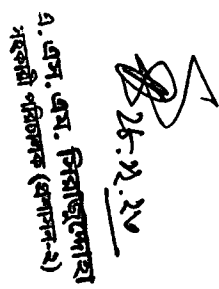 এ. এস. এম. সিরাজুদ্দোহা
সহকারী পরিচালক (প্রশাসন-২)